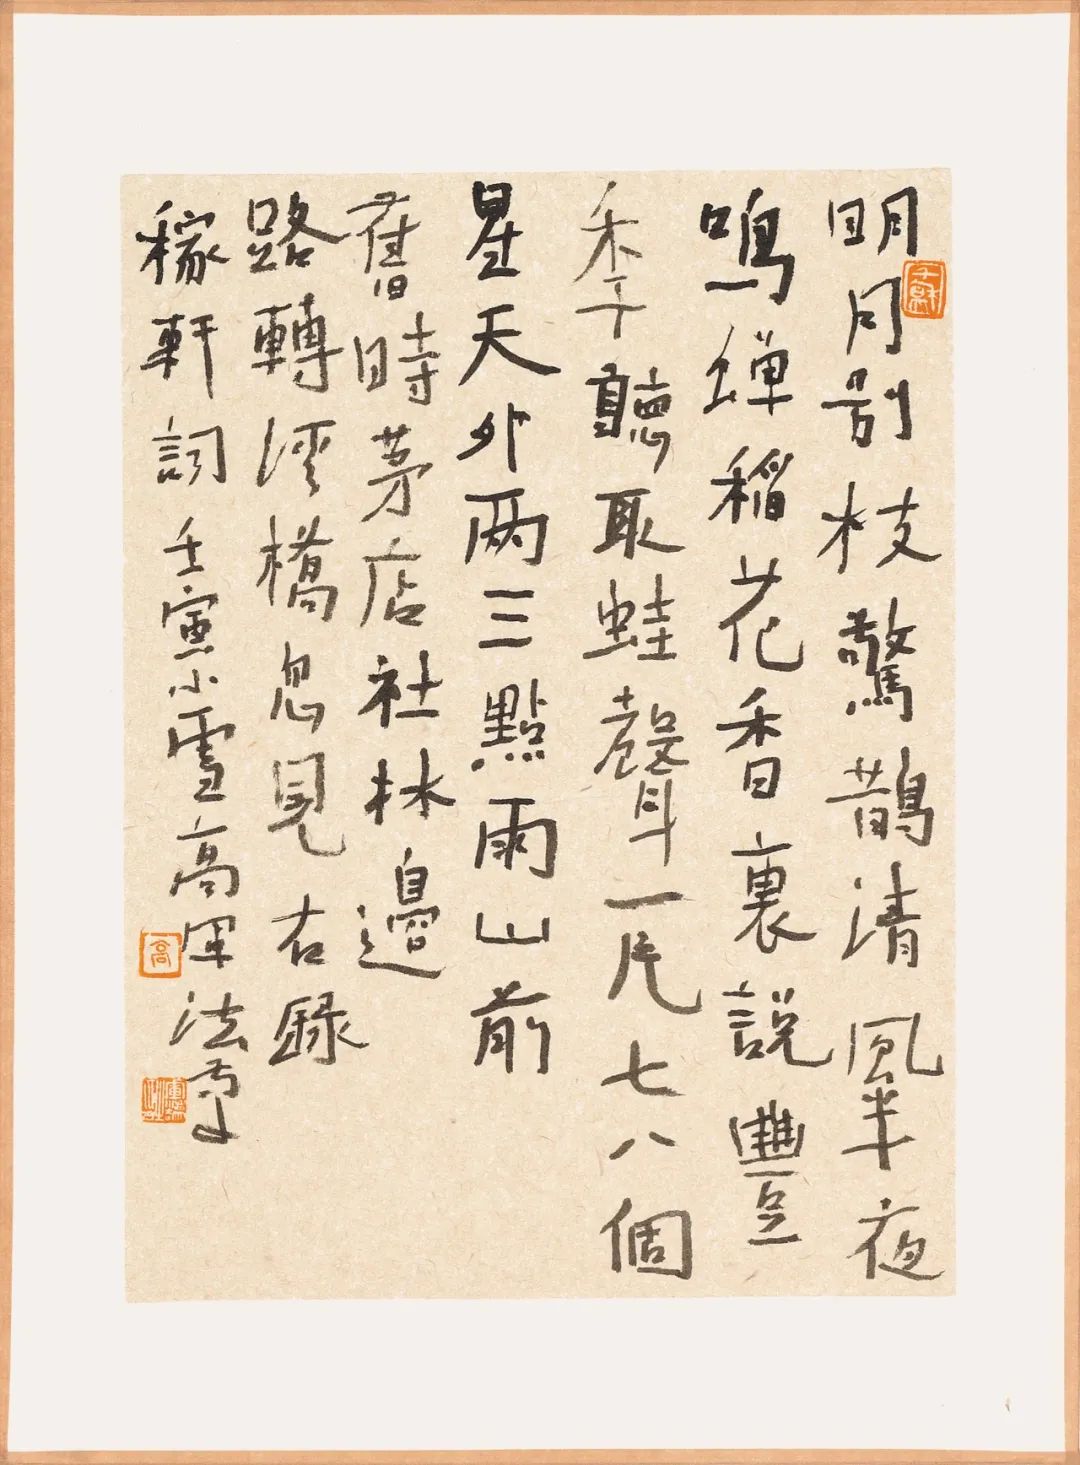 明月别枝驚鵲清風半夜
鳴蝉稻花香裏說豐
秊聽取蛙聲一片七八個
星天外两三點雨山前
舊時茅店社林邊
路轉溪橋忽見右録
稼軒詞壬寅小雪高軍法書
高